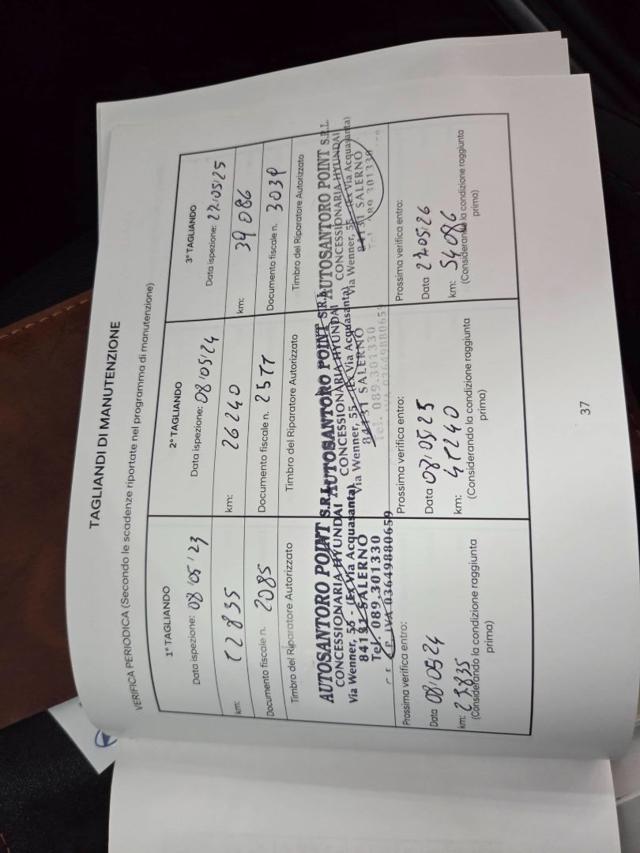 TAGLIANDI DI MANUTENZIONE
VERIFICA PERIODICA (Secondo le scadenze riportate nel programma di manutenzione)
1° TAGLIANDO
Data ispezione: 08/05/23
km: 12835
Documento fiscale n. 2085
Timbro del Riparatore Autorizzato
AUTOSANTORO POINT S.R.L.
CONCESSIONARIA HYUNDAI
Via Wenner, 55 - (Ex Via Acquasanta)
84131 SALERNO
Tel. 089.301330
P. IVA 03649880659
Prossima verifica entro:
Data 08/05/24
km: 27835
(Considerando la condizione raggiunta
prima)
2° TAGLIANDO
Data ispezione: 08/05/24
km: 26240
Documento fiscale n. 2577
Timbro del Riparatore Autorizzato
AUTOSANTORO POINT S.R.L.
CONCESSIONARIA HYUNDAI
Via Wenner, 55 - (Ex Via Acquasanta)
84131 SALERNO
Tel. 089.301330
P. IVA 03649880659
Prossima verifica entro:
Data 08/05/25
km: 41240
(Considerando la condizione raggiunta
prima)
3° TAGLIANDO
Data ispezione: 27/05/25
km: 39086
Documento fiscale n. 3039
Timbro del Riparatore Autorizzato
AUTOSANTORO POINT S.R.L.
CONCESSIONARIA HYUNDAI
Via Wenner, 55 - (Ex Via Acquasanta)
84131 SALERNO
Tel. 089.301330
Prossima verifica entro:
Data 27/05/26
km: 54086
(Considerando la condizione raggiunta
prima)
37